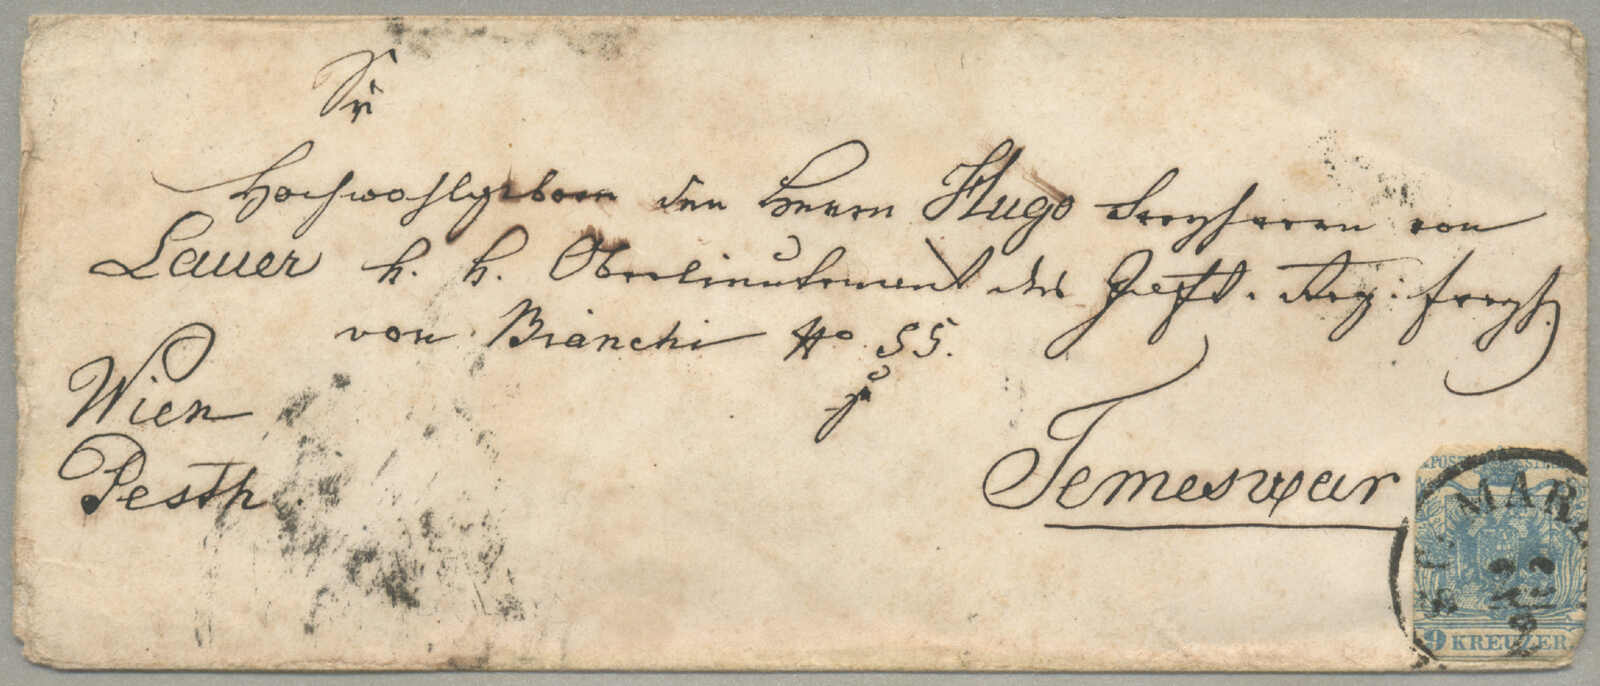 Sr
Hochwohlgeborn den Herrn Hugo Freyherrn von
Lauer k. k. Oberlieutenant des Inft. Reg: Freyh.
von Bianchi No 55.
Wien
Pesth
Temeswar
MARE
9 KREUZER